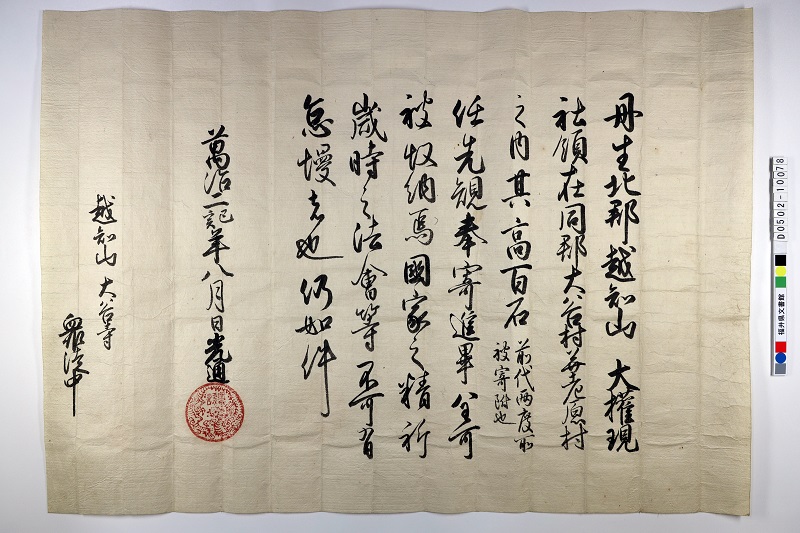 丹生北郡越知山 大権現
社領在同郡大谷寺村并厨村
之内其高百石 前代両度所
被寄附也
任先規奉寄進畢全可
被収納焉國家之精祈
歳時之法會等不可有
怠慢者也仍如件
萬治二己亥年八月日光通
越知山 大谷寺
衆徒中
D0502-10078
福井県文書館